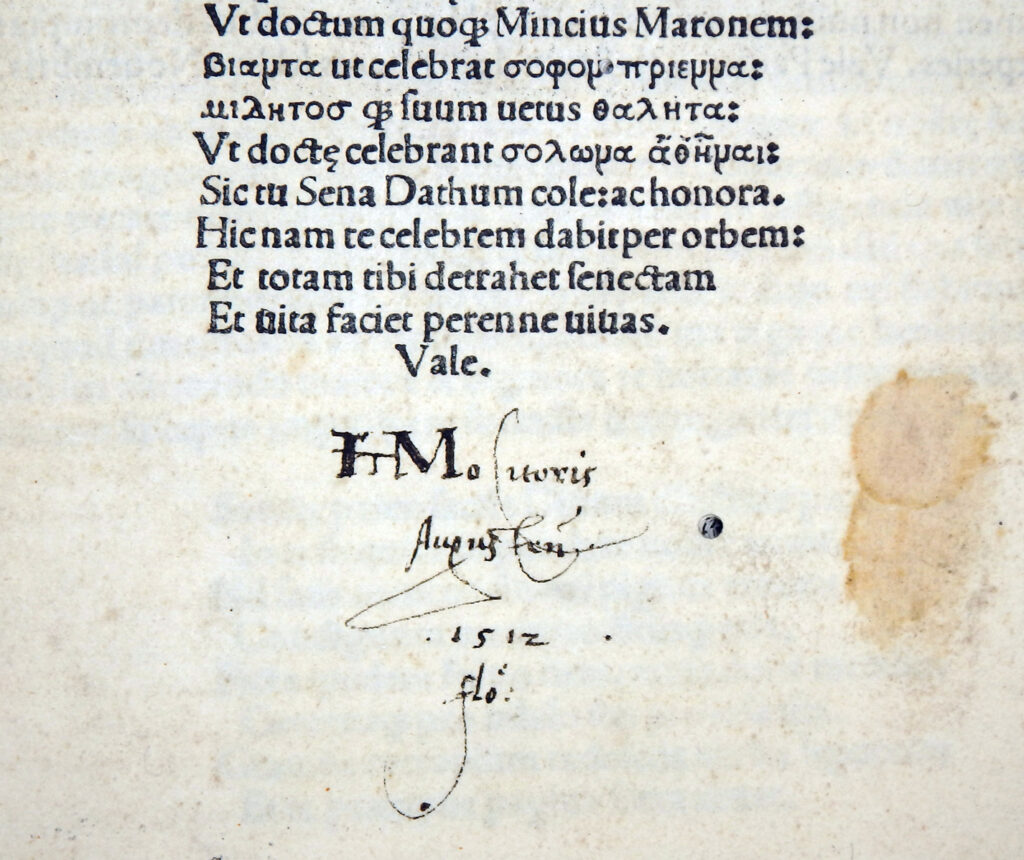 Vt doctum quoqꝫ Mincius Maronem:
βιαντα ut celebrat σοφον πριεννα:
μιλητοσ qꝫ ſuum uetus θαλητα:
Vt doctę celebrant σολωνα ἆθῆναι:
Sic tu Sena Dathum cole: ac honora.
Hic nam te celebrem dabit per orbem:
Et totam tibi detrahet ſenectam
Et uita faciet perenne uiuas.
Vale.
Molitoris
Auguſten̄
. 1512 .
flo: